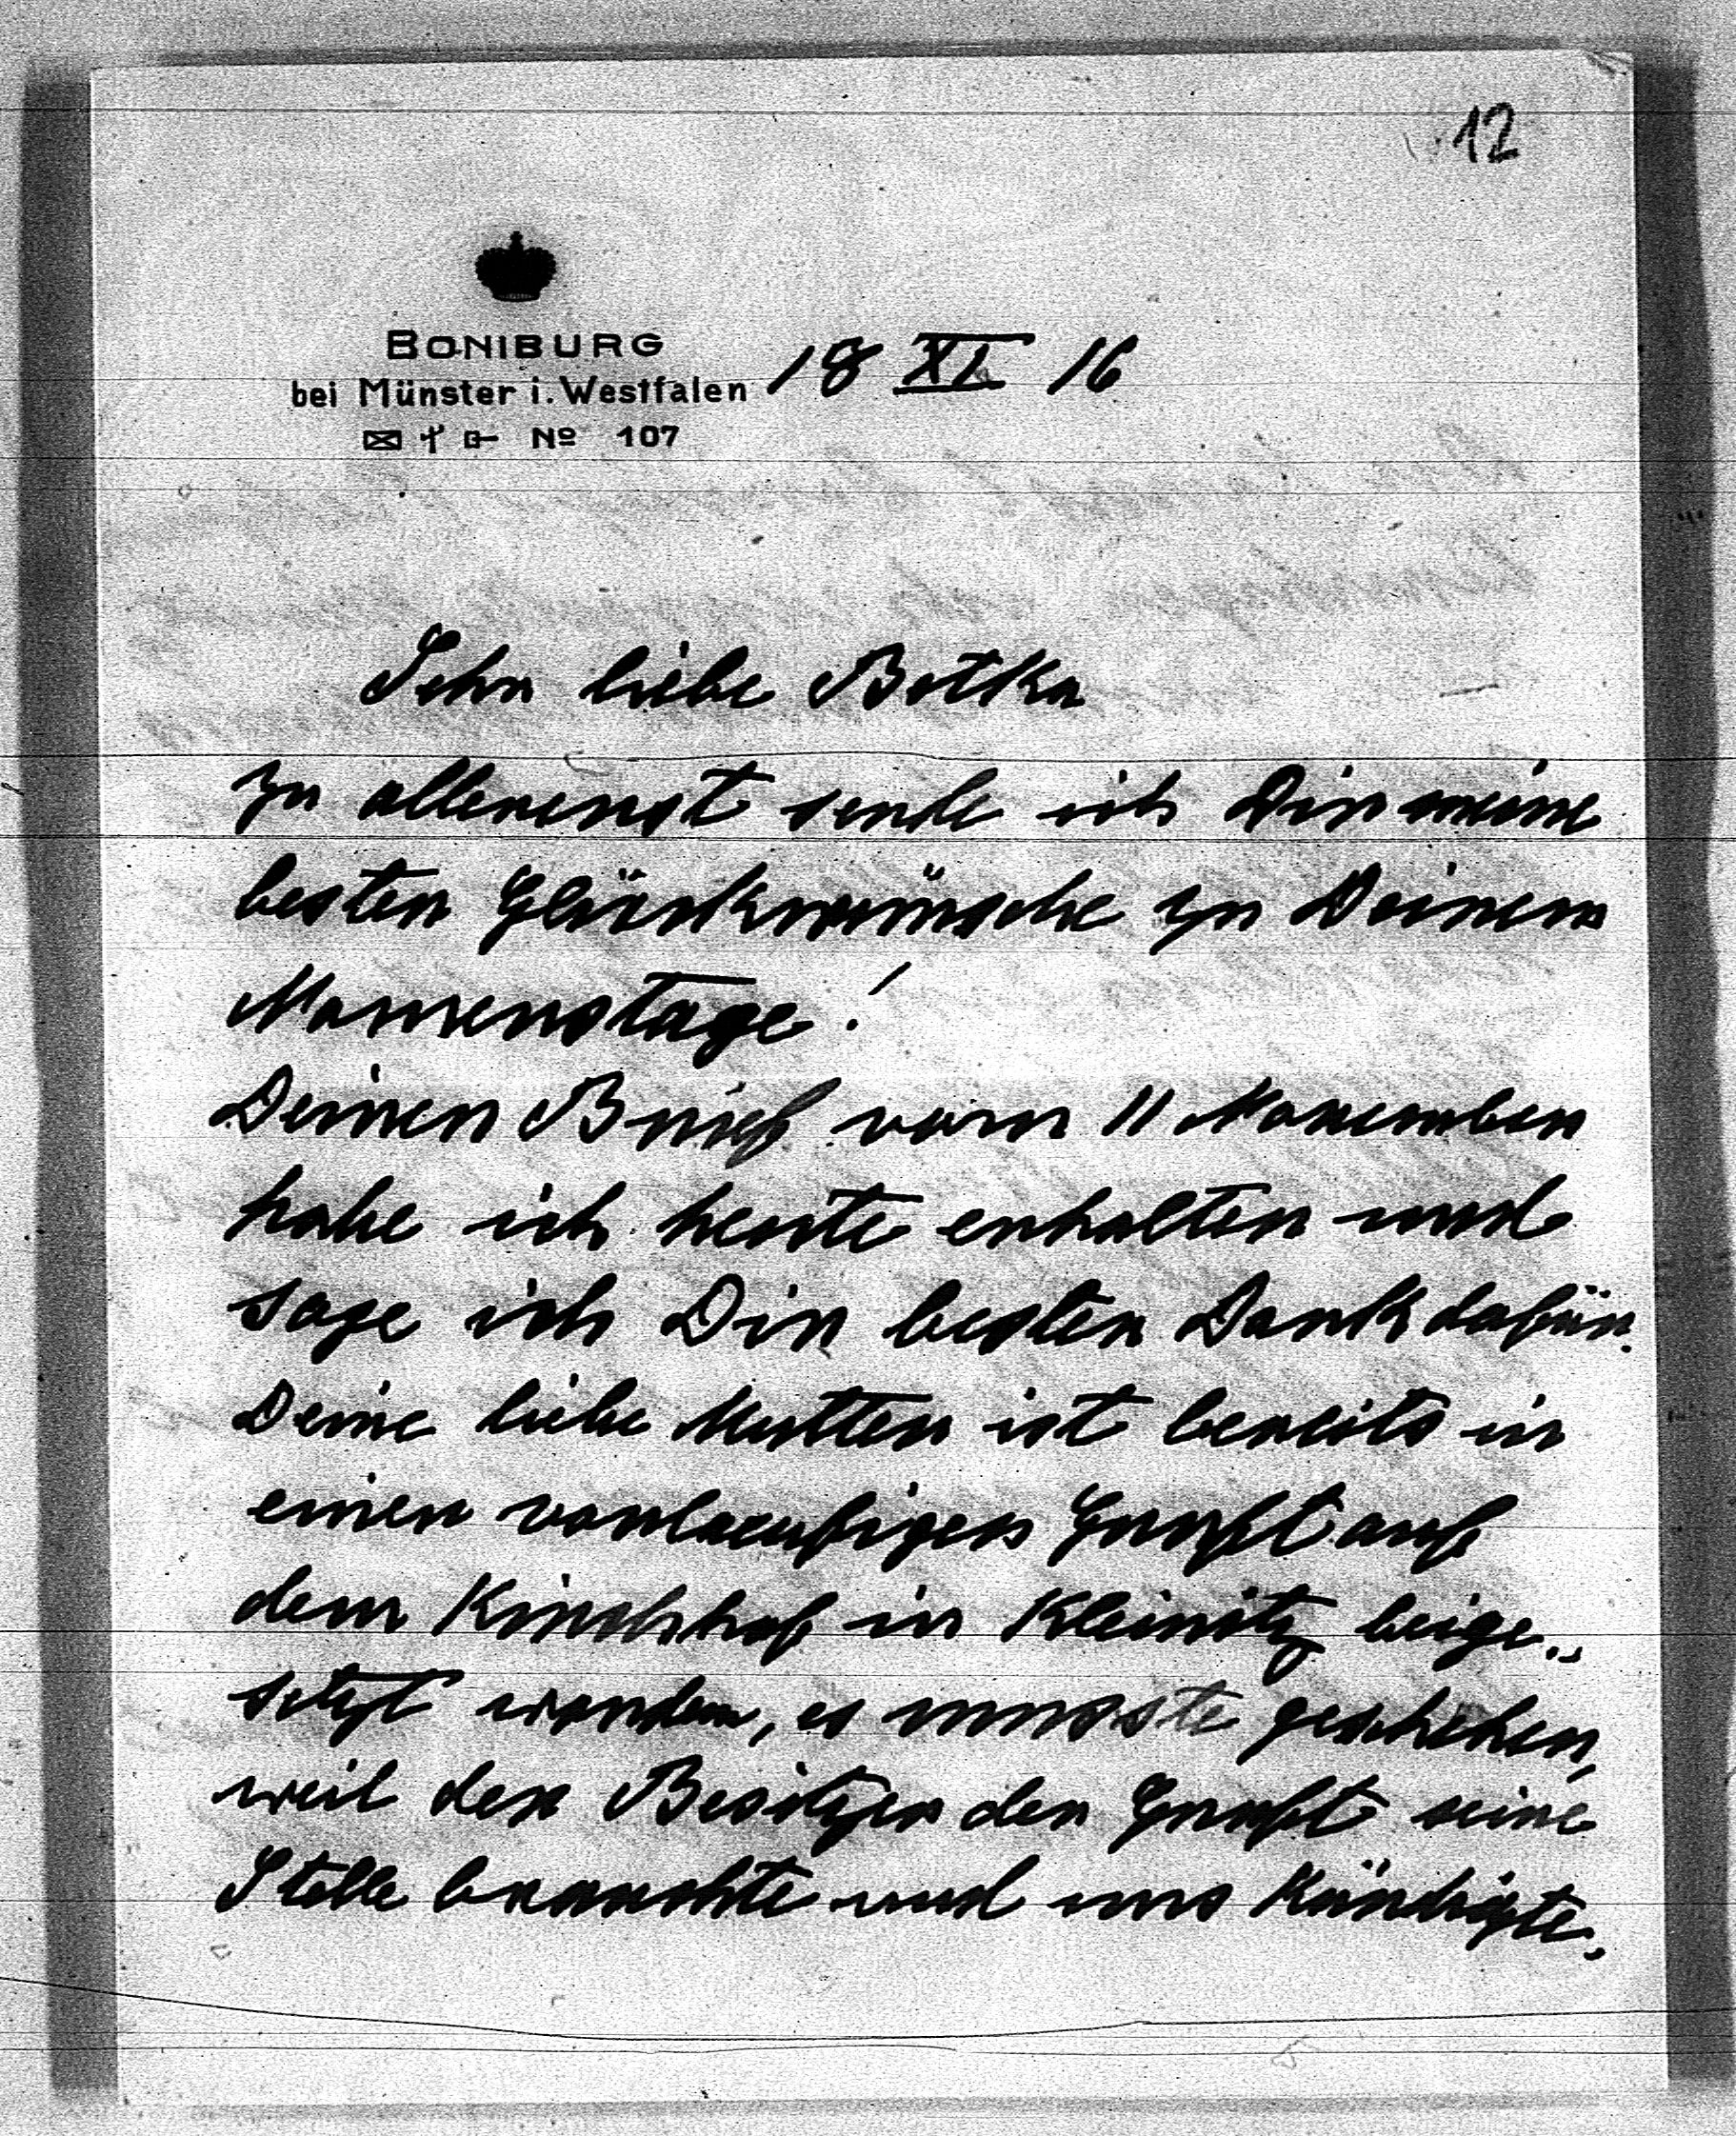 12
BONIBURG
bei Münster i. Westfalen 18 XI 16
No 107
Sehr liebe Botka
zu allererst sende ich Dir meine
besten Glückwünsche zu Deinem
Namenstage!
Deinen Brief vom 11 November
habe ich heute erhalten und
sage ich Dir besten Dank dafür.
Deine liebe Mutter ist bereits in
einen vorlaeufigen Gruft auf
dem Kirchhof in Kleinitz beige„
setzt worden, es musste geschehen,
weil der Besitzer der Gruft seine
Stelle brauchte und uns kündigte.